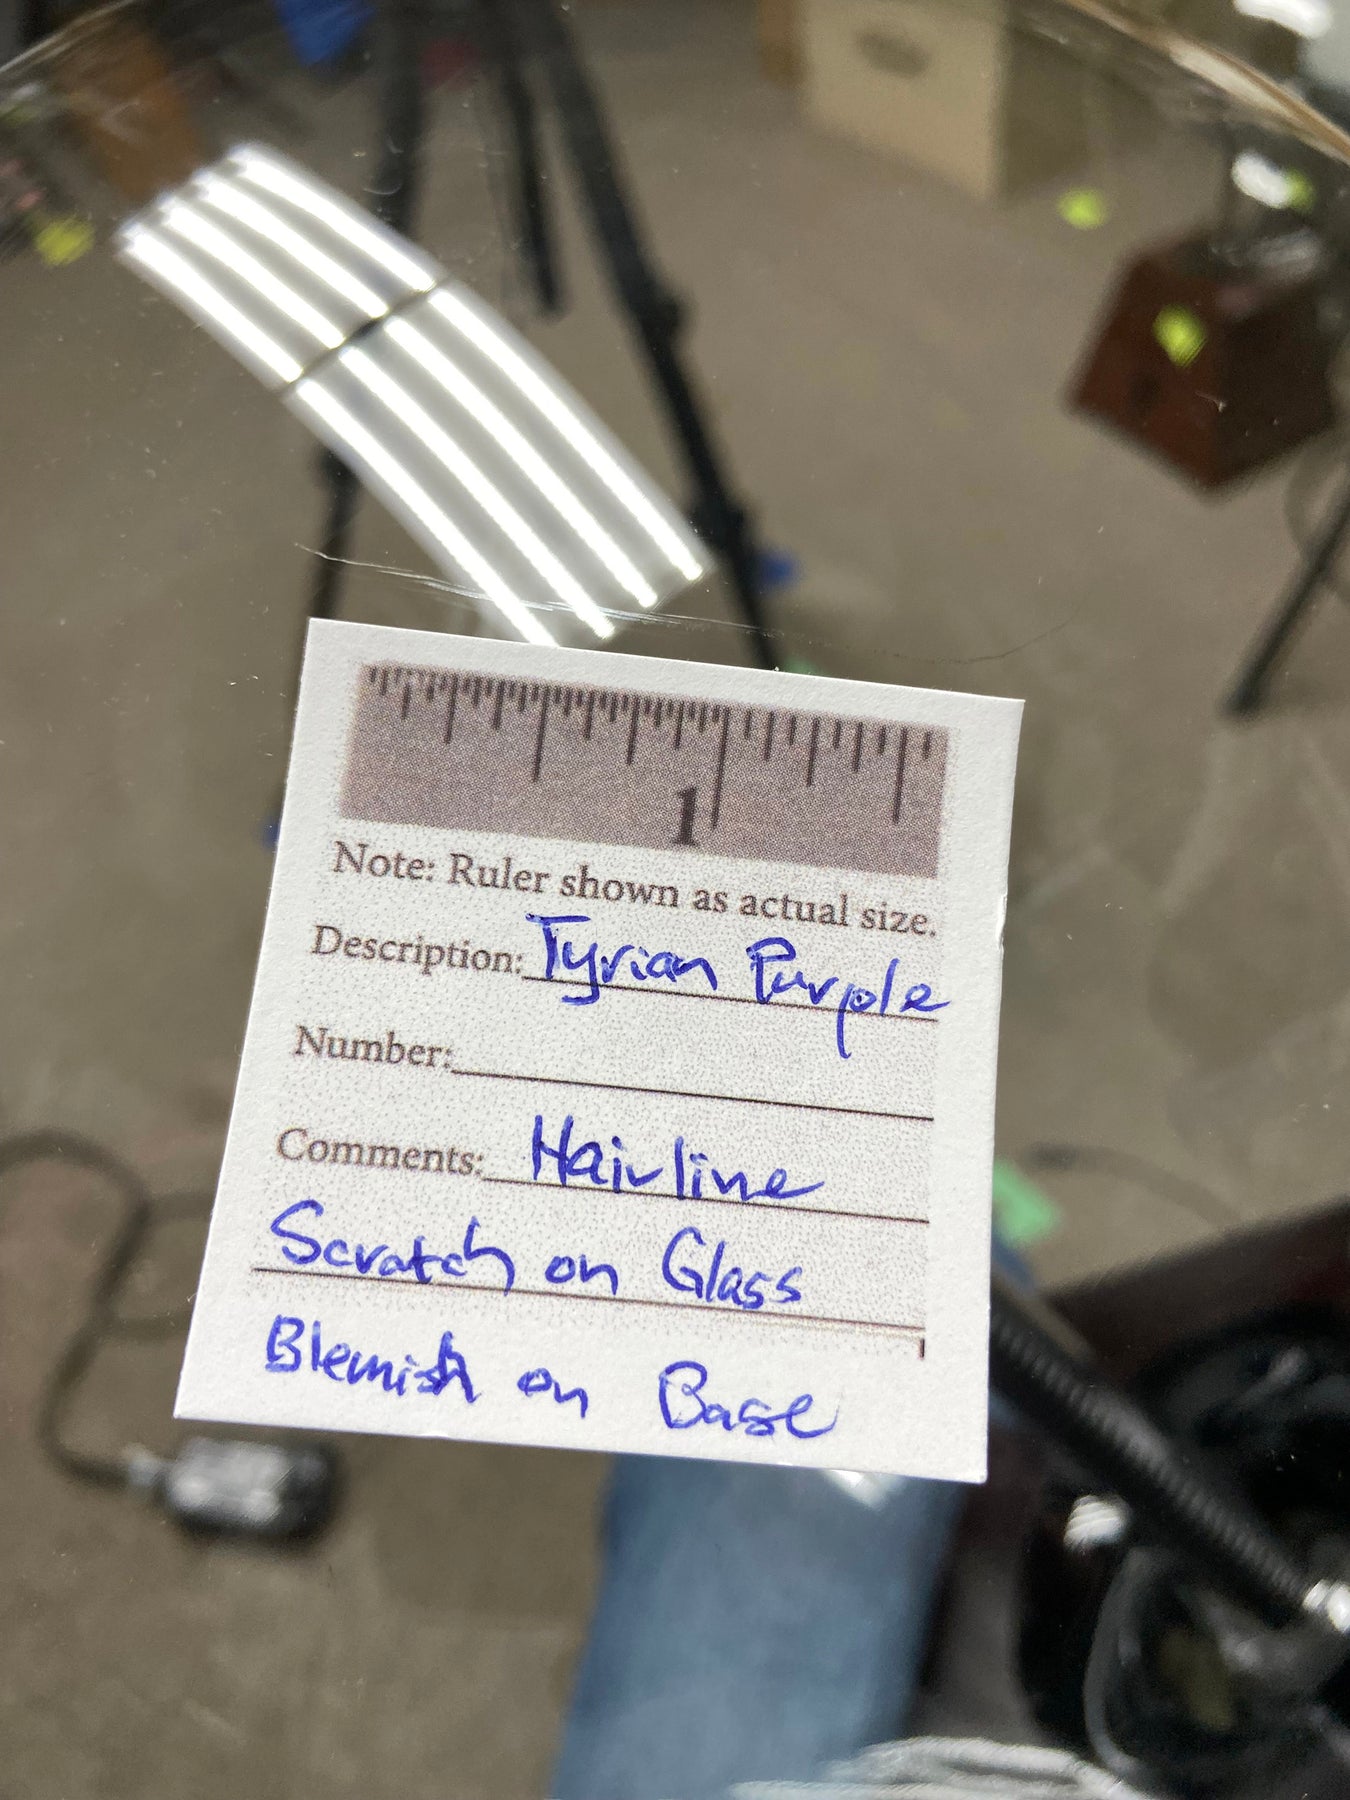 1
Note: Ruler shown as actual size.
Description: Tyrian Purple
Number:
Comments: Hairline
Scratch on Glass
Blemish on Base